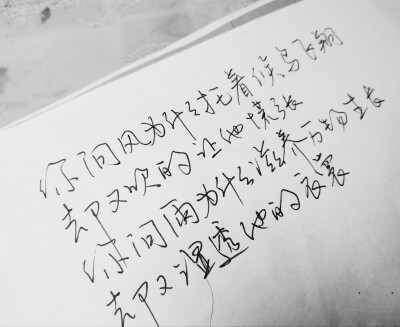 你问风为什么托着候鸟飞翔
却又吹的让他慌张
你问雨为什么滋养万物生长
却又湿透他的衣裳